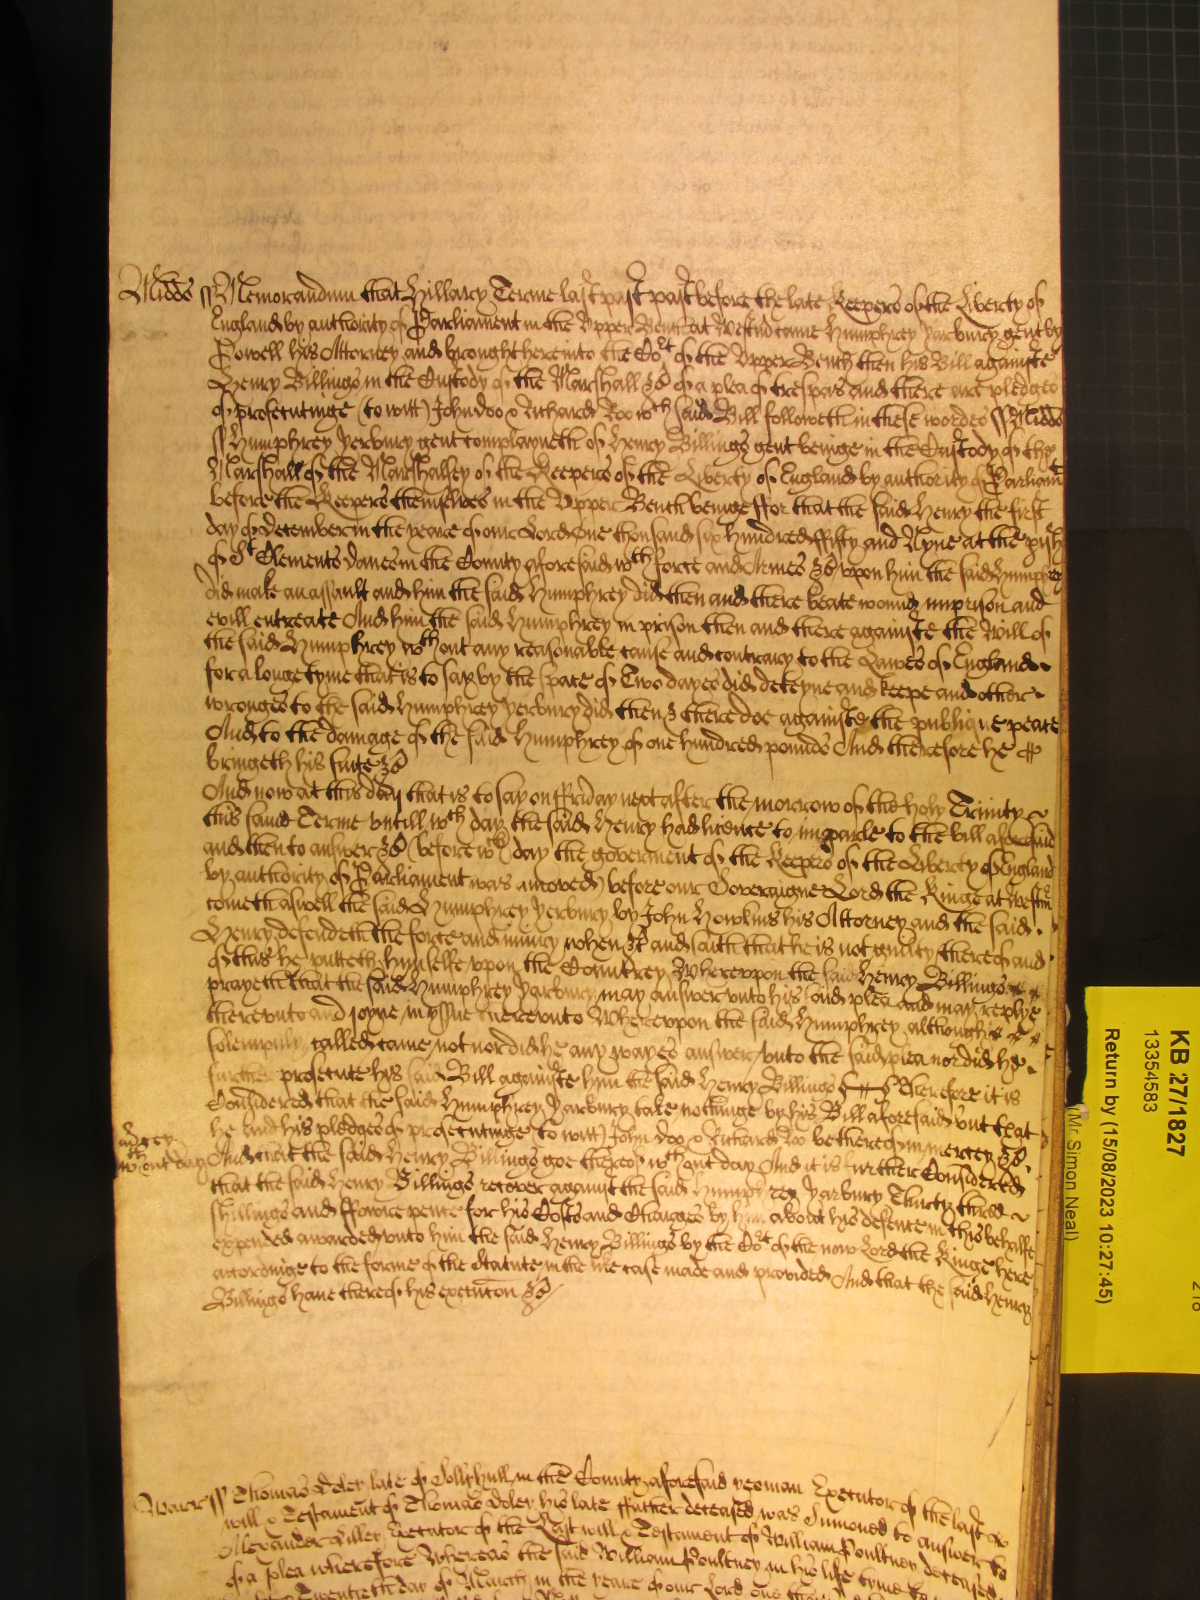 Midds ss Memorandum that Hillary Terme last past past before the late Keepers of the Liberty of
England by authority of Parliament in the Upper Bench at Westm̃ came Humphrey Yarbury gent by
Powell his Attorney and brought here into the Cort of the Upper Bench then his Bill againste
Henry Billings in the Custody of the Marshall &c of a plea of trespas and there are pledges
of prosecutinge (to witt) John Doo & Richard Roo wch said Bill followeth in these wordes ss Midds
ss Humphrey Yerbury gent complayneth of Henry Billings gent beinge in the Custody of the
Marshall of the Marshalsey of the Keepers of the Liberty of England by authority of Parliamt
before the Keepers themselves in the Upper Bench beinge ffor that the said Henry the first
day of December in the yeare of our Lord One thousand six hundred ffifty and Nyne at the pish
of St Clements Danes in the County aforesaid wth force and Armes &c upon him the said Humphrey
did make an assault and him the said Humphrey did then and there beate wound imprison and
evill entreate And him the said Humphrey in prison then and there againste the Will of
the said Humphrey wthout any reasonable cause and contrary to the Lawes of England
for a longe tyme that is to say by the space of Two dayes did deteyne and keepe and other
wronges to the said Humphrey Yerbury did then & there doe againste the publique peace
And to the damage of the said Humphrey of one hundred pounds And therefore he
bringeth his suite &c
And now at this day that is to say on ffriday next after the morrow of the holy Trinity
this same Terme untill wch day the said Henry had licence to imparle to the bill aforesaid
and then to answer &c (before wch day the goverment of the Keepers of the Liberty of England
by authority of Parliament was amoved) before our Soveraigne Lord the Kinge at Westm̃
cometh aswell the said Humphrey Yerbury by John Howkins his Attorney and the said
Henry defendeth the force and iniury when &c and saith that he is not guilty thereof and
of this he putteth himselfe upon the Countrey Whereupon the said Henry Billings
prayeth that the said Humphrey Yarbury may answer unto his said plea and may replye
thereunto and joyne in yssue thereunto Whereupon the said Humphrey although
solempnly called came not nor did he any wayes answer unto the said plea nor did he
further prosecute his said Bill againste him the said Henry Billings Therefore it is
Considered that the said Humphrey Yarbury take nothinge by his Bill aforesaid but that
he and his pledges of prosecutinge (to witt) John Doo & Richard Roo be thereof in mercey &c
mercey
wthout day
And that the said Henry Billings goe thereof wthout day And it is further Considered
that the said Henry Billings recover against the said Humphrey Yarbury Thirty three
shillings and ffowre pence for his Costs and Charges by him about his defence in this behalfe
expended awarded unto him the said Henry Billings by the Cort of the now Lord the Kinge here
accordinge to the forme of the Statute in the like case made and provided And that the said Henry
Billings have thereof his execucon &c
Warr ss Thomas Doley late of Sollyhull in the County aforesaid yeoman Executor of the last
will & Testament of Thomas Doley his late ffather deceased was Sumoned to answer to
Alexander Lilley Executor of the Last will & Testament of William Poultney deceased
of a plea wherefore Whereas the said William Poultney in his life tyme
Twentieth day of March in the yeare of our Lord one
KB 27/1827
13354583
Return by (15/08/2023 10:27:45)
(Mr Simon Neal)